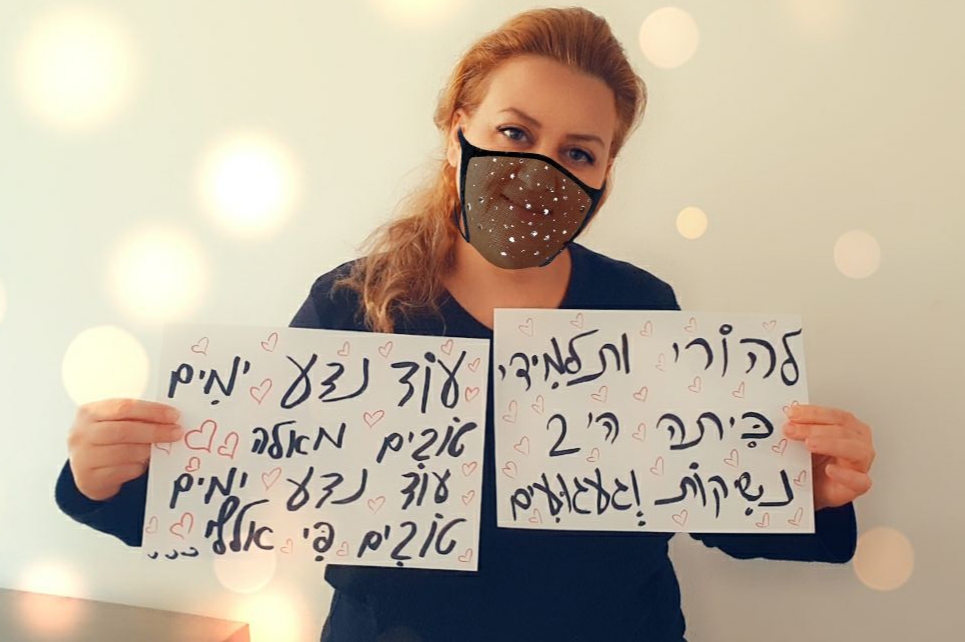 להוֹרי ותלמִידי
כִּיתה ה׳ 2
נשִיקוֹת וגעגוּעִים
עוֹד נדע ימִים
טוֹבִים מאלה
עוֹד נדע ימִים
טוֹבִים פִּי אלף...